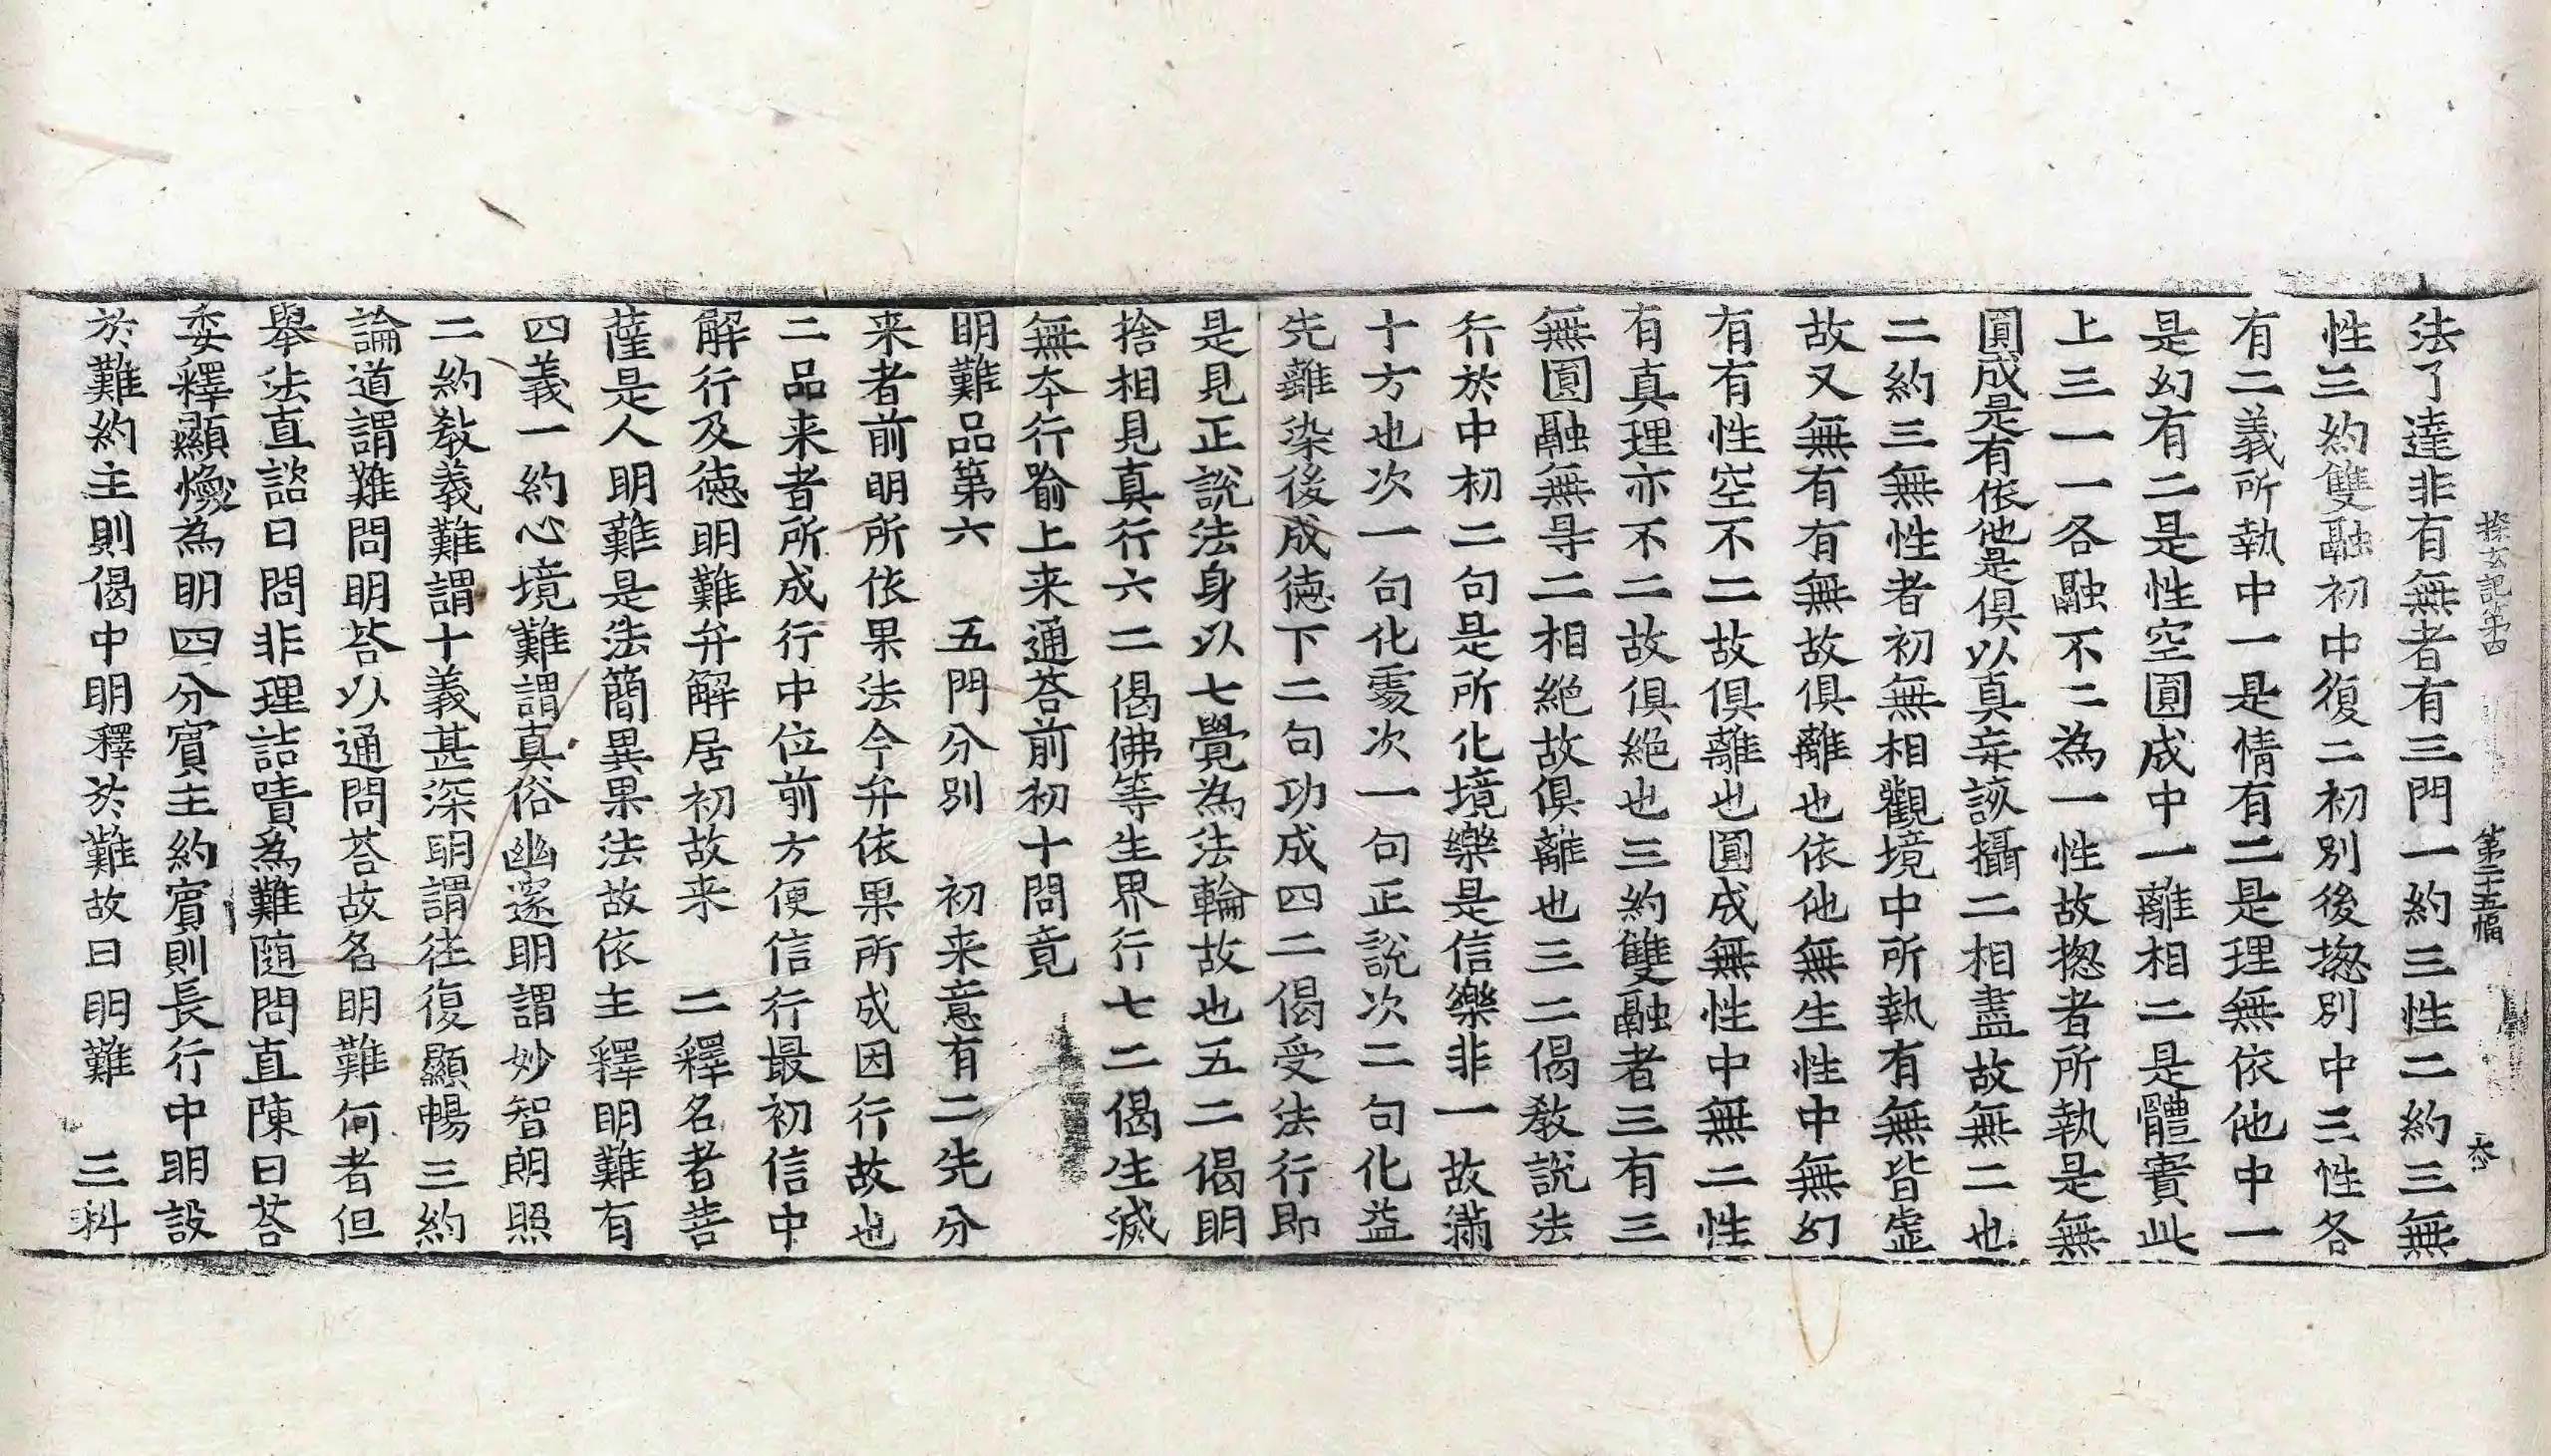 探玄記第四 第二十五幅
法了達非有無者有三門一約三性二約三無
性三約雙融初中復二初別後揔別中三性各
有二義所執中一是情有二是理無依他中一
是幻有二是性空圓成中一離相二是體實此
上三一一各融不二為一性故揔者所執是無
圓成是有依他是俱以真妄該攝二相盡故無二也
二約三無性者初無相觀境中所執有無皆虛
故又無有有無故俱離也依他無生性中無幻
有有性空不二故俱離也圓成無性中無二性
有真理亦不二故俱絕也三約雙融者三有三
無圓融無导二相絕故俱離也三二偈敎說法
行於中初二句是所化境樂是信樂非一故滿
十方也次一句化處次一句正說次二句化益
先離染後成徳下二句功成四二偈受法行即
是見正說法身以七覺為法輪故也五二偈明
捨相見真行六二偈佛等生界行七二偈生滅
無本行𣦃上来通荅前初十問竟
明難品第六 五門分別 初来意有二先分
来者前明所依果法今弁依果所成因行故也
二品来者所成行中位前方便信行最初信中
解行及徳明難弁解居初故来 二釋名者菩
薩是人明難是法簡異果法故依主釋明難有
四義一約心境難謂真俗幽邃明謂妙智朗照
二約敎義難謂十義甚深明謂往復顯暢三約
論道謂難問明荅以通問荅故名明難何者但
舉法直談曰問非理詰嘖為難随問直陳曰荅
委釋顯煥為明四分賓主約賓則長行中明設
於難約主則偈中明釋於難故曰明難 三料